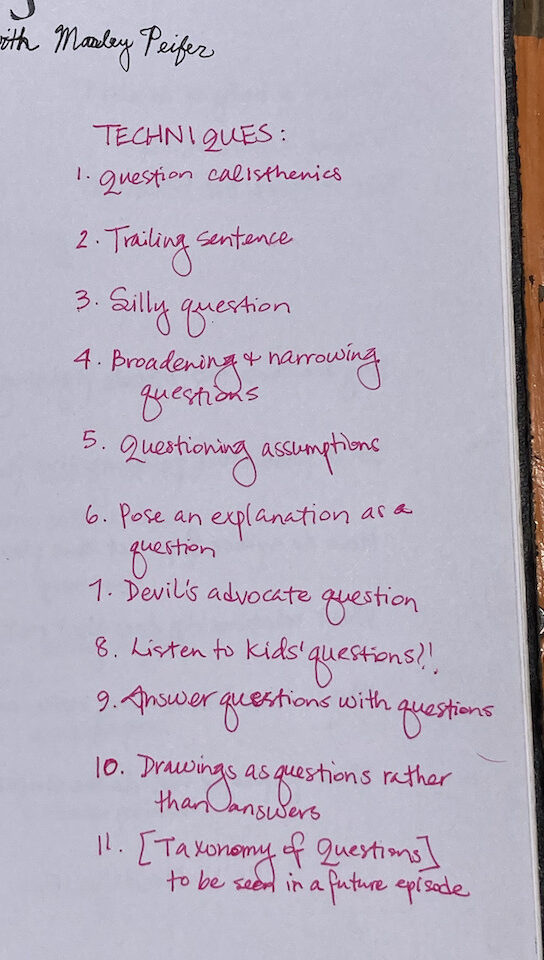 with Marley Peifer
TECHNIQUES:
1. Question calisthenics
2. Trailing sentence
3. Silly question
4. Broadening & narrowing
questions
5. Questioning assumptions
6. Pose an explanation as a
question
7. Devil's advocate question
8. Listen to kids' questions?!
9. Answer questions with questions
10. Drawings as questions rather
than answers
11. [Taxonomy of Questions]
to be seen in a future episode